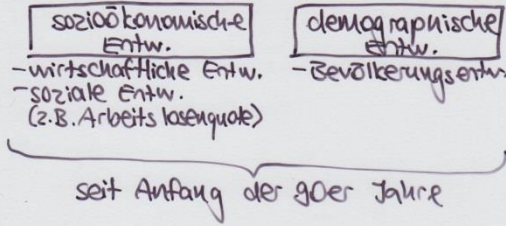 sozioökonomische Entw.
- wirtschaftliche Entw.
- soziale Entw.
(z.B. Arbeitslosenquote)
demographische Entw.
- Bevölkerungsentw.
seit Anfang der 90er Jahre